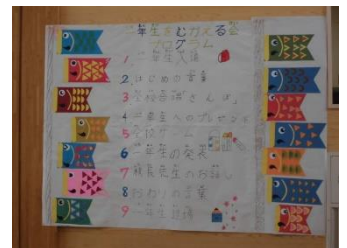 一年生をむかえる会
プログラム
1. 一年生入場
2. はじめの言葉
3 全校
4 一年生へのプレゼント
5 全校ゲーム
6 一年生の発表
7 校長先生のお話
8 おわりの言葉
9 一年生退場